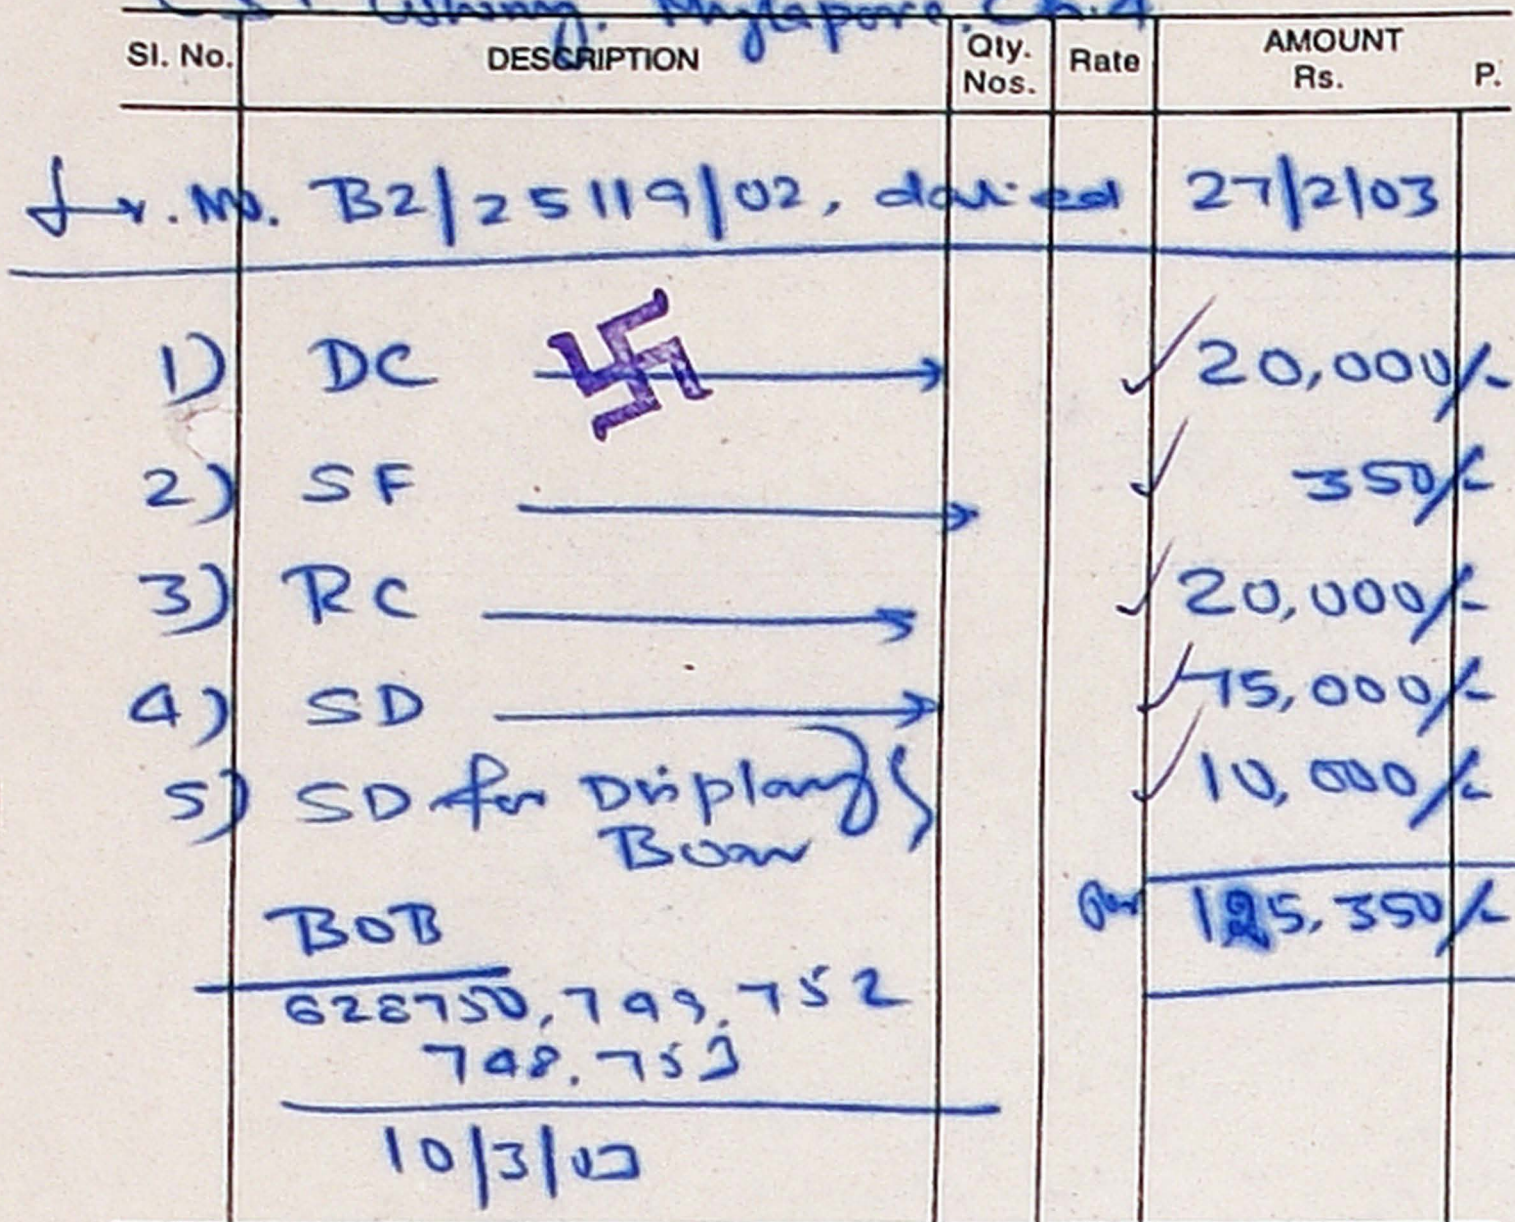 Mylapore, Ch.4
Sl. No. DESCRIPTION Qty. Nos. Rate AMOUNT Rs. P.
Lr. No. B2/25119/02, dated 27/2/03
1) DC 20,000/-
2) SF 350/-
3) RC 20,000/-
4) SD 75,000/-
5) SD for Display 10,000/-
BOB 125,350/-
628750, 749, 752
748, 753
10/3/03